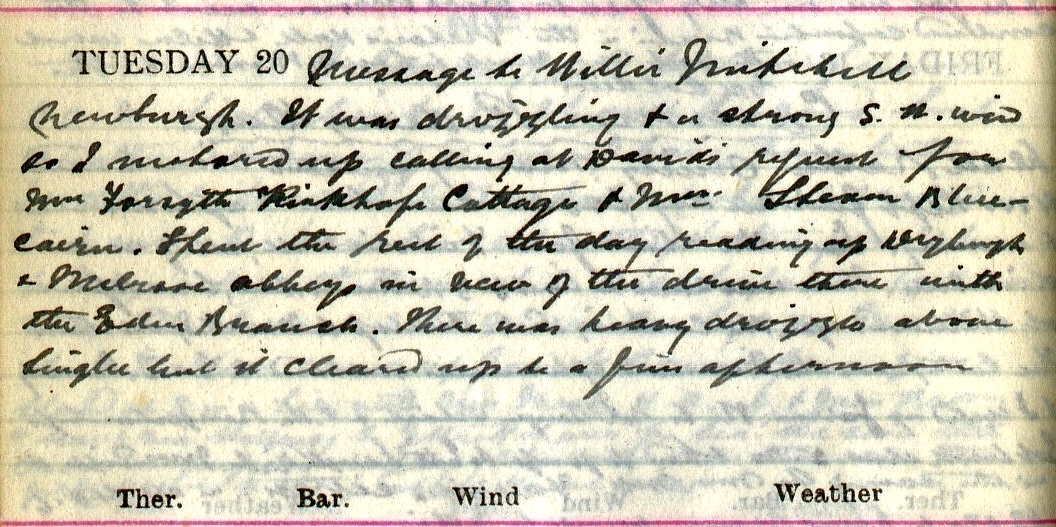 TUESDAY 20 Message to Willie Mitchell
Newburgh. It was drizzling & a strong S. W. wind
so I motored up calling at Davids request for
Mrs Forsyth Kirkhope Cottage & Mrs Blue-
cairn. Spent the rest of the day reading up Dryburgh
& Melrose abbeys in view of the drive there with
the Eden Branch. There was heavy drizzle above
Singlie but it cleared up to a fine afternoon
Ther. Bar. Wind Weather